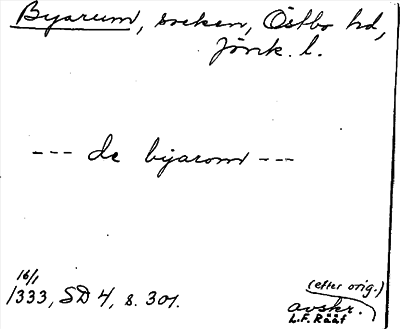 Byarum, socken, Östbo hd,
Jönk. l.
--- de bijarom ---
16/1
1333, SD 4, s. 301.
(efter orig.)
avskr.
L.F. Rääf